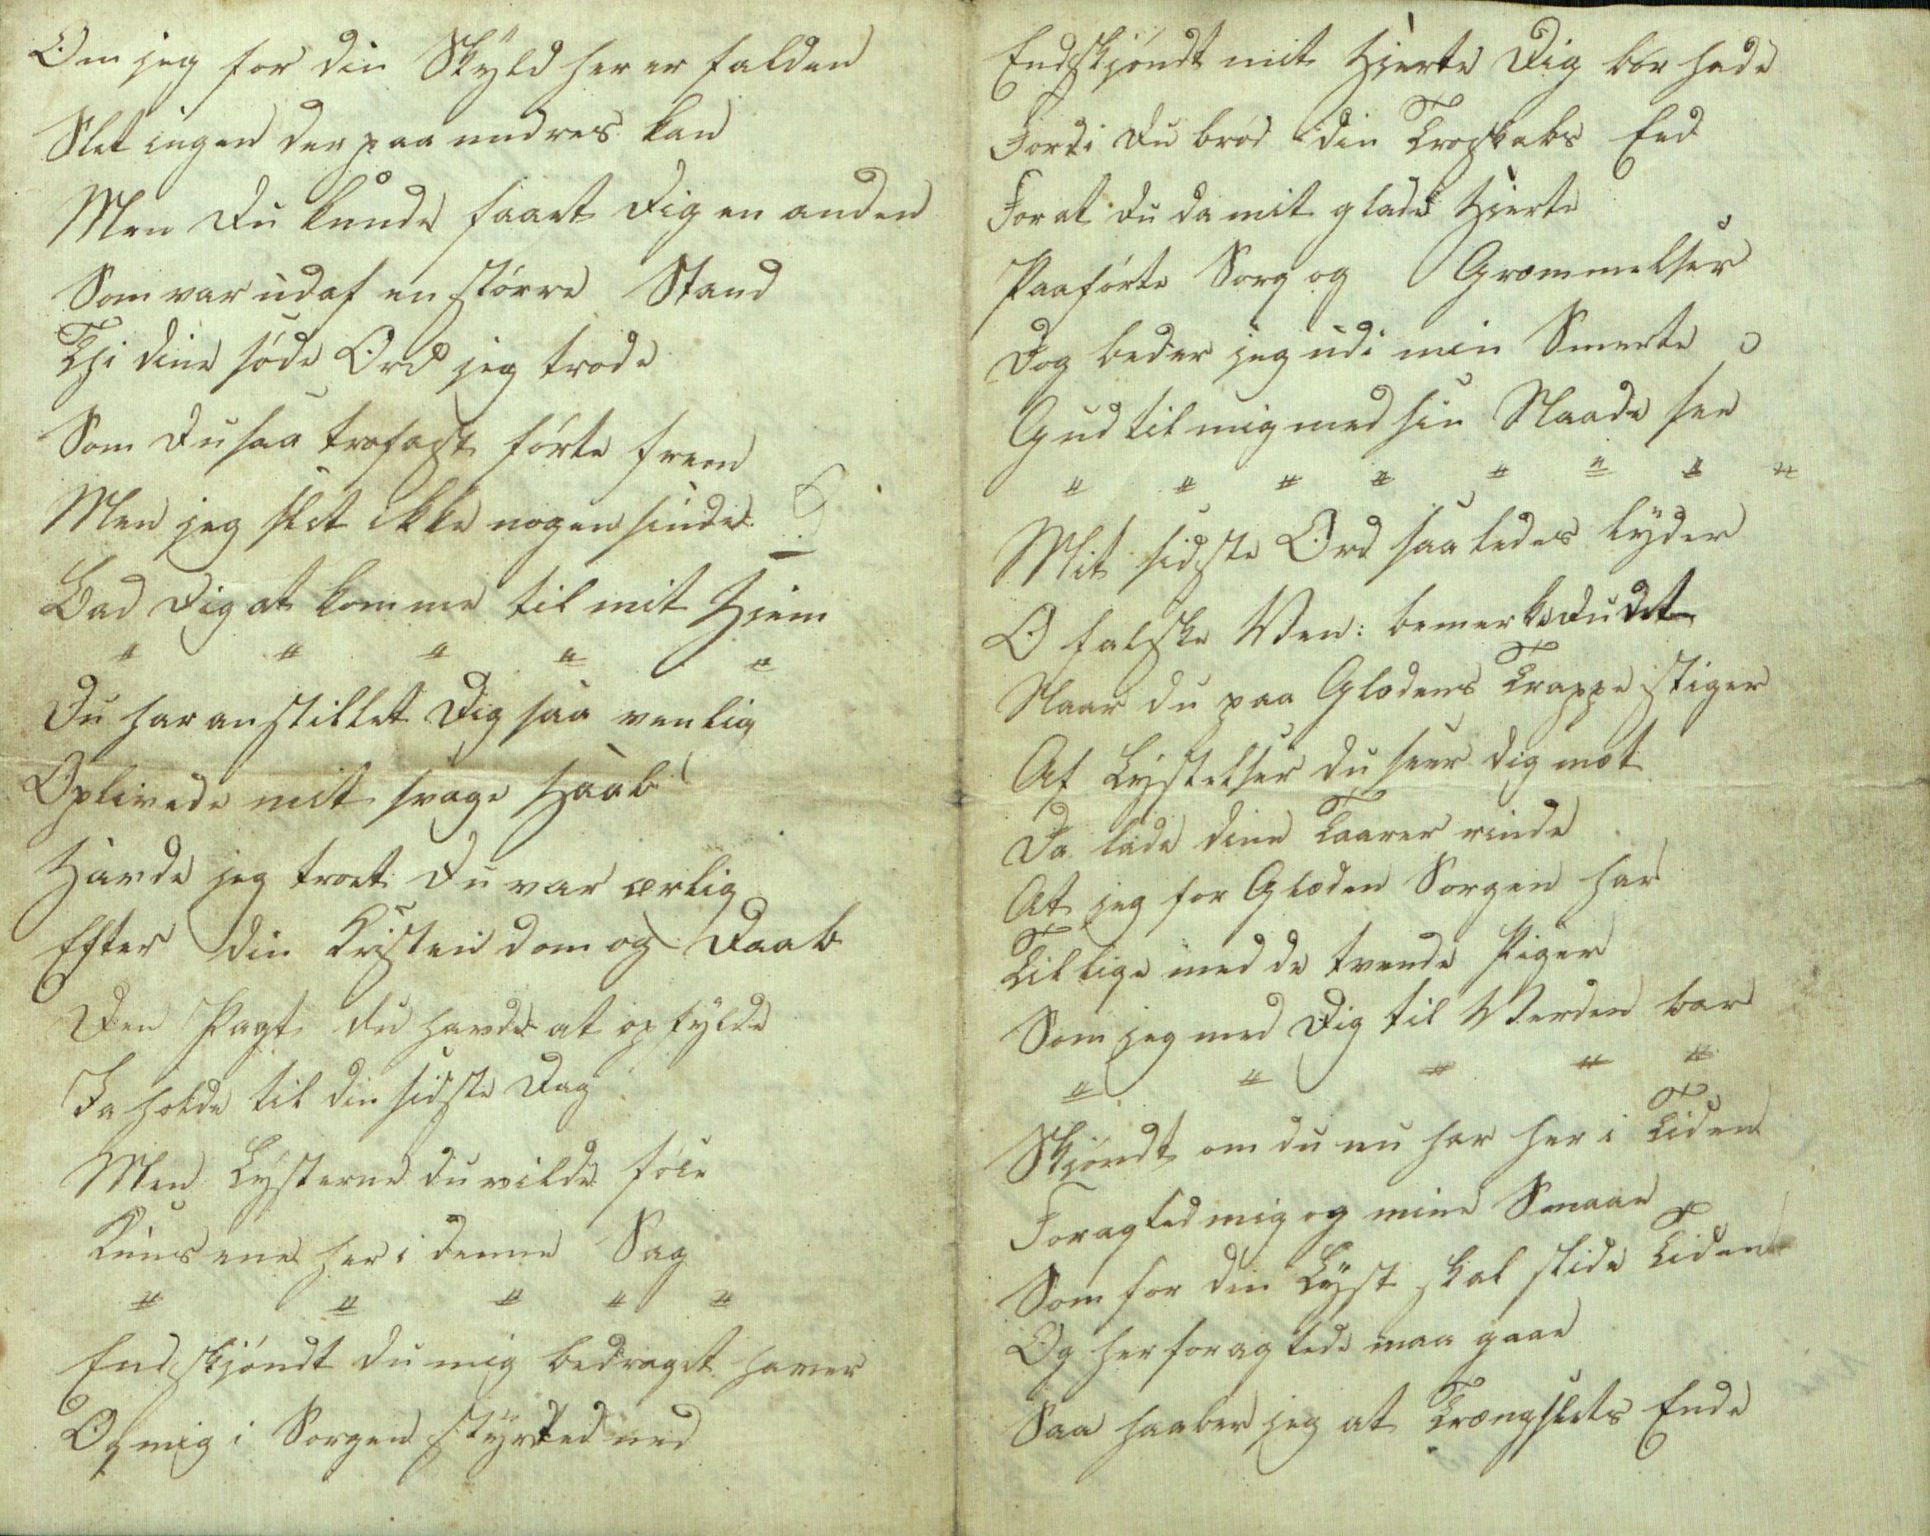 Om jeg for din Skyld her er falden
Slet ingen der paa undres kan
Men du kunde faaet Dig en anden
Som var udaf en større Stand
Thi dine søde Ord jeg trode
Som du saa trofast førte frem
Men jeg slet ikke nogen sinde
Bad Dig at komme til mit Hjem
" " " " "
Du har anstillet Dig saa venlig
Oplivede mit svage Haab
Havde jeg troet du var ærlig
Efter din Kristendom og Daab
Den Pagt du havde at opfylde
Ja holde til din sidste Dag
Men Lysterne du vilde føie
ene her i denne Sag
" " " " "
Endskjøndt du mig bedraget haver
Og mig i Sorgen styrted ned
Endskjøndt mit Hjerte Dig bør hade
Fordi du brød din Troskabs Eed
For at du da mit glade Hjerte
Paaførte Sorg og Græmmelser
Dog beder jeg udi min Smerte
Gud til mig med sin Naade see
" " " " " " " "
Mit sidste Ord saaledes lyder
O falske Ven: bemerke du det
Naar du paa Glædens Trappe stiger
Af Lystelser du seer dig mæt
Da lade dine Taarer rinde
At jeg for Glæden Sorgen har
Tillige med de tvende Piger
Som jeg med Dig til Verden bar
" " " " "
Skjøndt om du nu har her i Tiden
Foragted mig og mine Smaae
Som for din Lyst skal slide Tiden
Og her foragtede maa gaae
Saa haaber jeg at Trængslets Ende